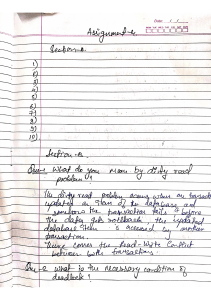 Date: / /
Assignment-
Section-
1)
2)
3)
4)
5)
6)
7)
8)
9)
10)
Section-B
Que-1 What do you mean by dirty read
problem?
The dirty read problem occurs when an transaction
updates an item of the database and
somehow the transaction fails & before
the data gets rollback, the updated
database item is accessed by another
transaction.
comes the Read-Write Conflict
between both transactions.
Que-2 What is the necessary condition of
deadlock?